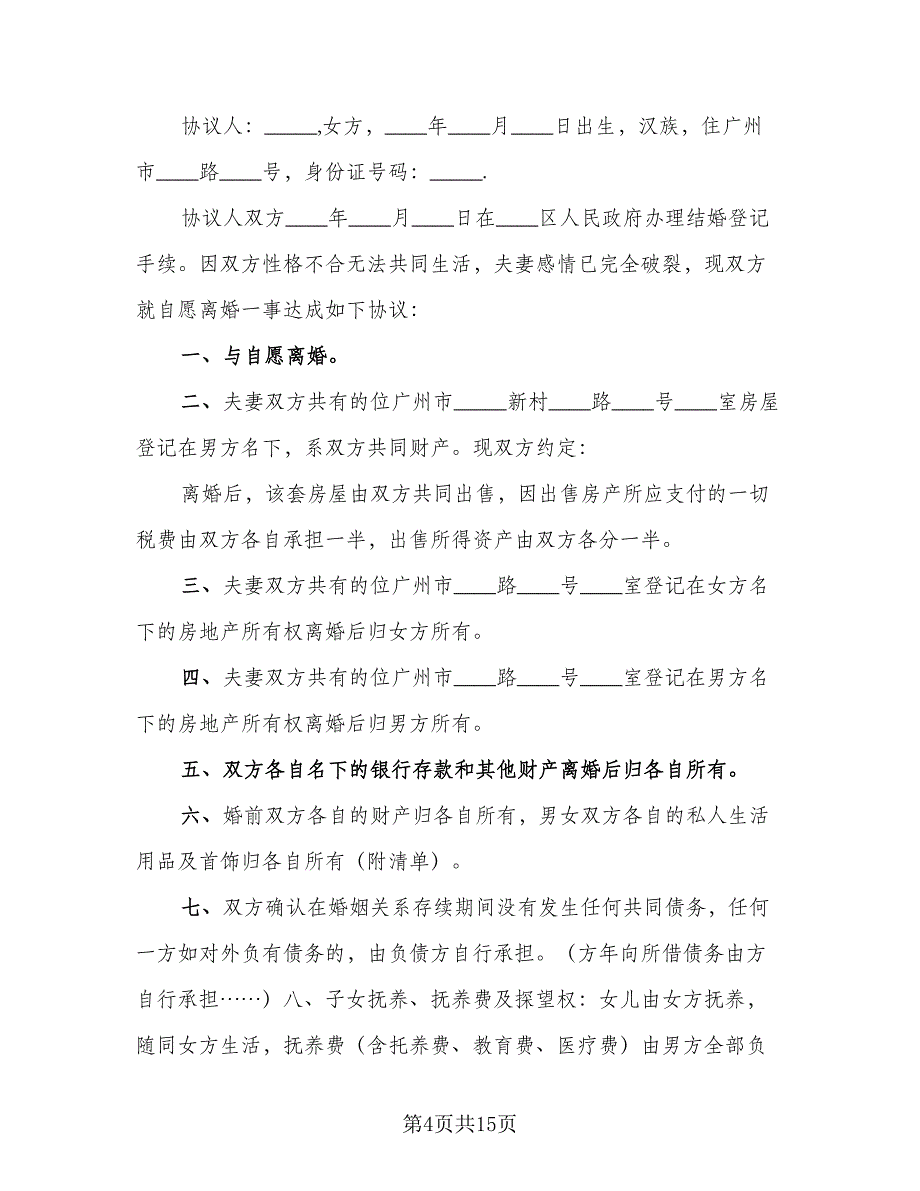 协议人：_____,女方，____年____月____日出生，汉族，住广州
市____路____号，身份证号码：_____.
协议人双方____年____月____日在____区人民政府办理结婚登记
手续。因双方性格不合无法共同生活，夫妻感情已完全破裂，现双方
就自愿离婚一事达成如下协议：
一、与自愿离婚。
二、夫妻双方共有的位广州市_____新村____路____号____室房屋
登记在男方名下，系双方共同财产。现双方约定：
离婚后，该套房屋由双方共同出售，因出售房产所应支付的一切
税费由双方各自承担一半，出售所得资产由双方各分一半。
三、夫妻双方共有的位广州市____路____号____室登记在女方名
下的房地产所有权离婚后归女方所有。
四、夫妻双方共有的位广州市____路____号____室登记在男方名
下的房地产所有权离婚后归男方所有。
五、双方各自名下的银行存款和其他财产离婚后归各自所有。
六、婚前双方各自的财产归各自所有，男女双方各自的私人生活
用品及首饰归各自所有（附清单）。
七、双方确认在婚姻关系存续期间没有发生任何共同债务，任何
一方如对外负有债务的，由负债方自行承担。（方年向所借债务由方
自行承担……）八、子女抚养、抚养费及探望权：女儿由女方抚养，
随同女方生活，抚养费（含托养费、教育费、医疗费）由男方全部负
第4页共15页